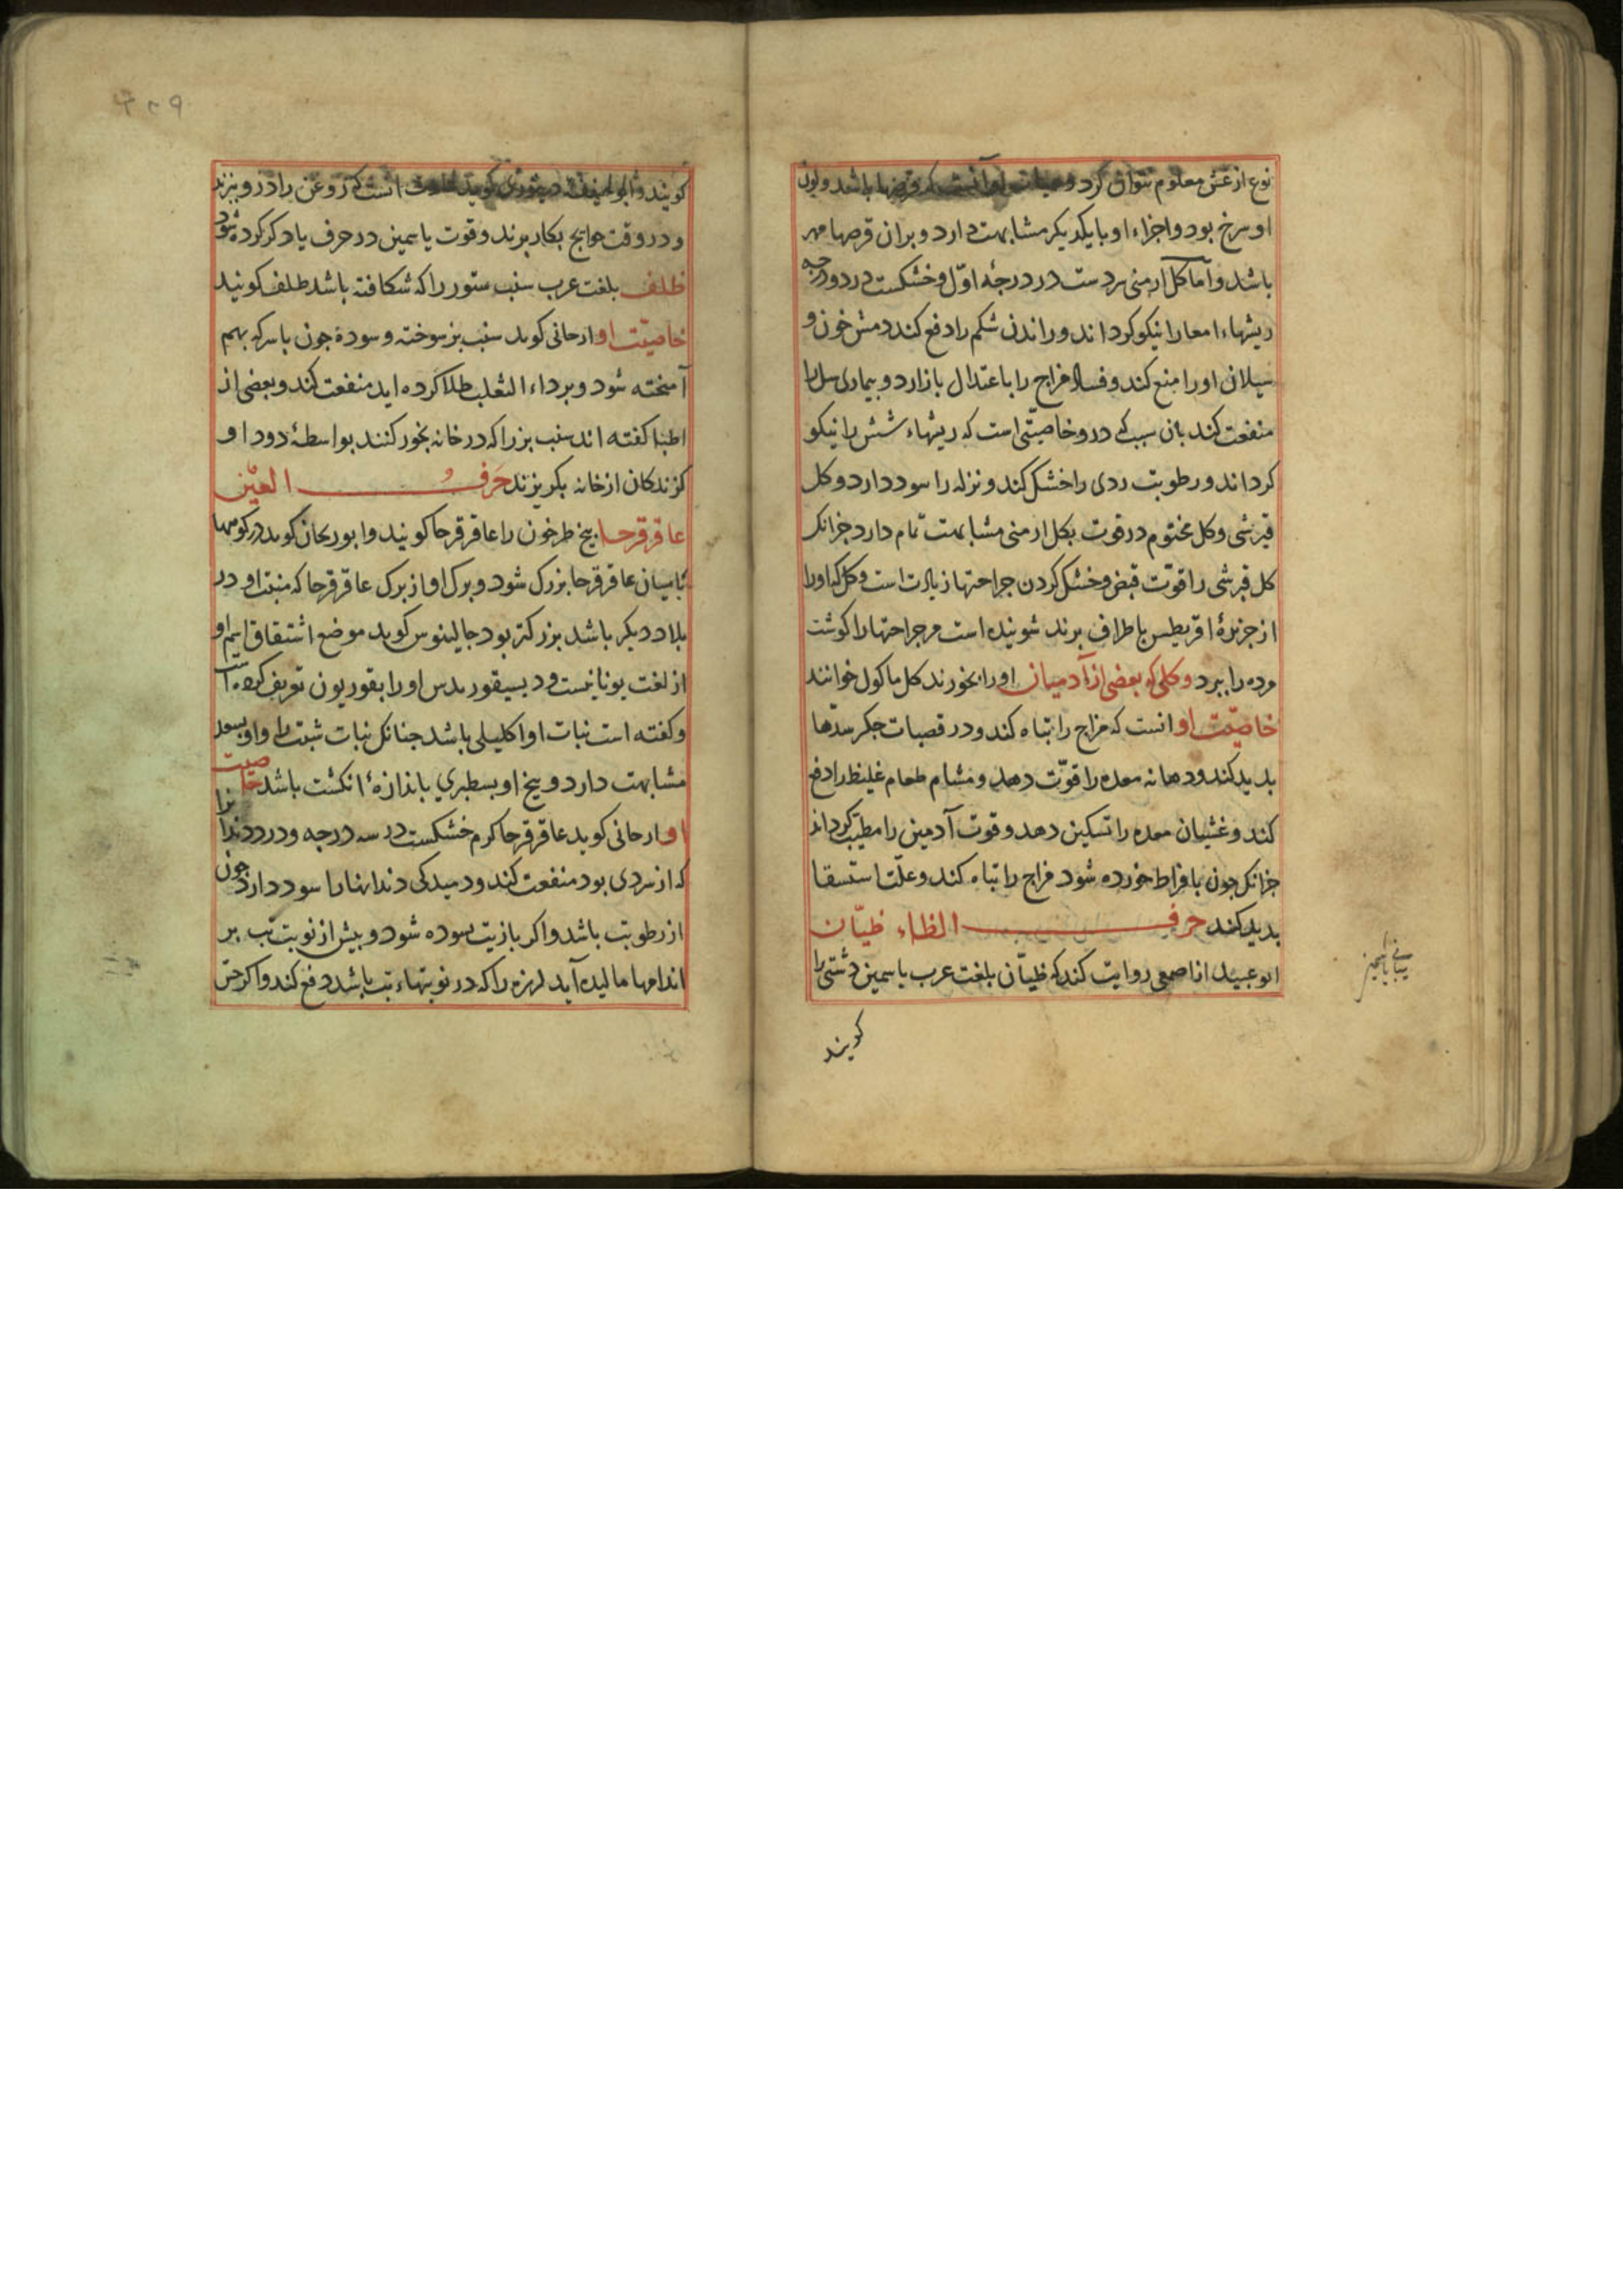 نوع از غش معلوم نتوان کرد و باشد و لون
او سرخ بود و اجزاء او با یکدیکر مشابهت دارد و بران قرصها مهر
باشد و اما کل ارمنی سردست در درجهٔ اوّل و خشکست در دو درجه
ریشهاء امعا را نیکو کرداند و راندن شکم را دفع کند دمش خون و
سیلان او را منع کند و فساد مزاج را با عتدال باز ارد و بیماری سل را
منفعت کند بان سبب که درو خاصیّتی است که ریشهاء شش را نیکو
کرداند و رطوبت ردی را خشک کند و نزله را سود دارد و کل
قبرشی و کل مختوم در قوت بکل ارمنی مشابهت تمام دارد جزانک
کل قبرشی را قوّت قبض و خشک کردن جراحتها زیادت است و کل که او را
از جزیرهٔ اقریطس باطراف برند شوینده است مر جراحتها را کوشت
مرده را ببرد و کلی که بعضی از آدمیان او را بخورند کل ماکول خوانند
خاصیّت او انست که مزاج را تباه کند و در قصبات جکر سدّها
بدید کند و دهانه معده را قوّت دهد و مشام طعام غلیظ را دفع
کند و غشیان معده را تسکین دهد و قوت آدمین را مطیّب کرداند
جزانک جون بافراط خورده شود مزاج را تباه کند و علّت استسقا
بدید کند حرف الظاء ظیّان
ابو عبید از اصمعی روایت کند که ظیّان بلغت عرب یاسمین دشتی را
کویند
کویند و ابو حنیفه دینوری کوید انست که روغن را درو بزند
و در وقت حوایج بکار برند و قوت یاسمین در حرف یا ذکر کرده شود
ظلف بلغت عرب سنب ستور را که شکافته باشد ظلف کویند
خاصیّت او ارجانی کوید سنب بز سوخته و سوده جون با سرکه بهم
آمیخته شود و بر داء الثعلب طلا کرده اید منفعت کند و بعضی از
اطبا کفته اند سنب بز را که در خانه بخور کنند بواسطهٔ دود او
کزندکان از خانه بکریزند حرفُ العیْن
عاقرقرحا بیخ طرخون را عاقرقرحا کویند و ابو ریحان کوید در کوهها
بامیان عاقرقرحا بزرک شود و برک او از برک عاقرقرحا که منبت او در
بلاد دیکر باشد بزرکتر بود جالینوس کوید موضع اشتقاق اسم او
از لغت یونانیست و دیسیقوریدس او را بقوریون تعریف کرده است
و کفته است نبات او اکلیلی باشد جنانک نبات شبت را و او
مشابهت دارد و بیخ او بسطبری باندازهٔ انکشت باشد خاصیت
او ارجانی کوید عاقرقرحا کرم خشکست در سه درجه و درد دندانرا
که از سردی بود منفعت کند و دمیدکی دندانها را سود دارد جون
از رطوبت باشد و اکر با زیت سوده شود و بیش از نوبت تب بر
اندامها مالیده آید لرزه را که در نوبتهاء تب باشد دفع کند و اکر حس